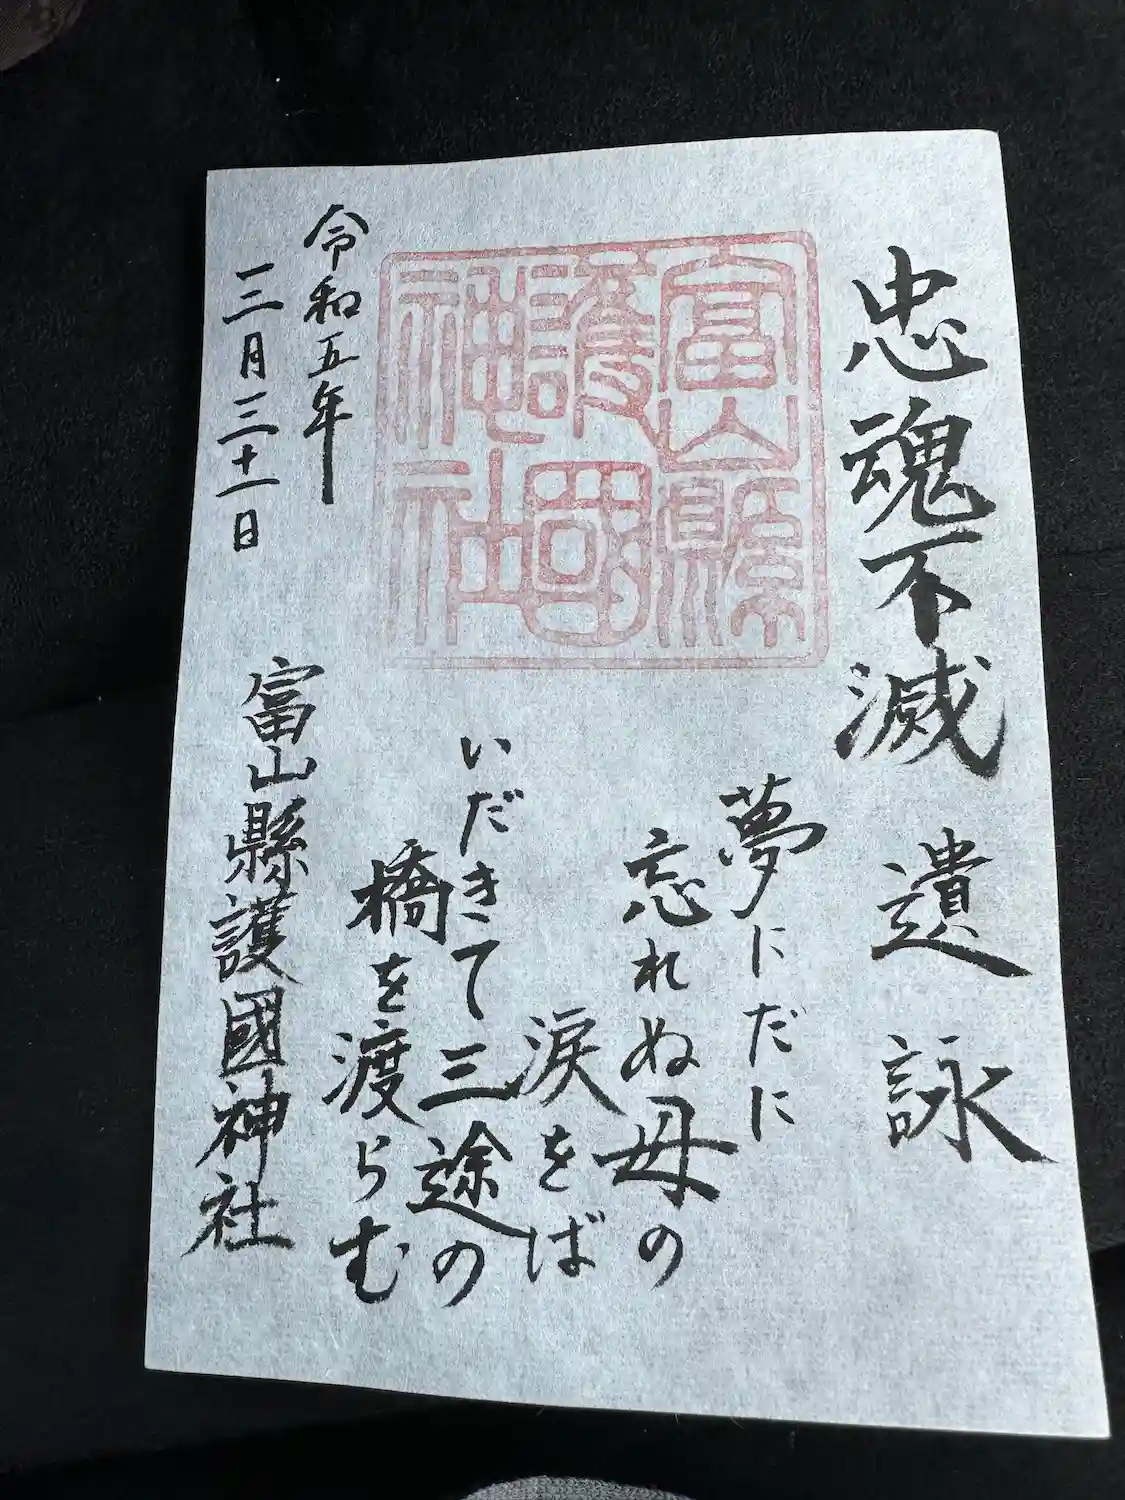 忠魂不滅　遺詠
富山縣
護國
神社
夢にだに
忘れぬ母の
涙をば
いだきて三途の
橋を渡らむ
令和五年
三月三十一日
富山縣護國神社